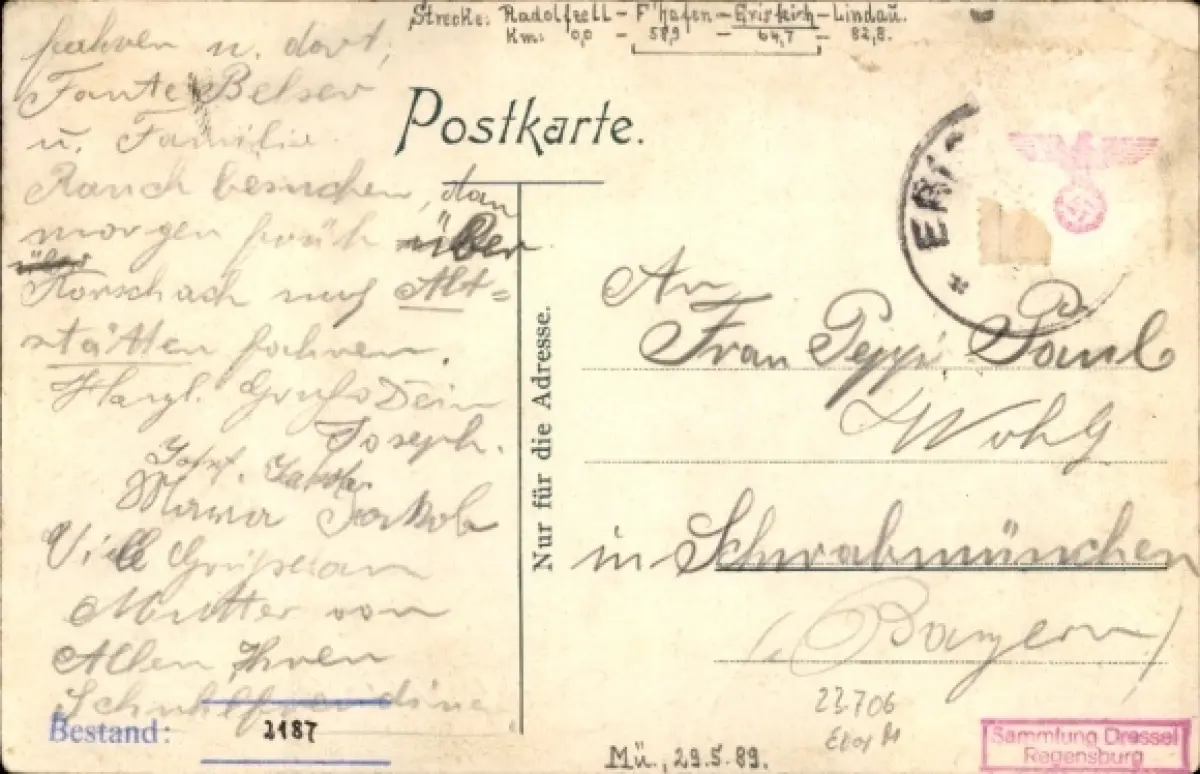 Strecke: Radolfzell – F'hafen – Eriskirch – Lindau.
Km: 0,0 – 58,9 – 64,7 – 82,8.
Postkarte.
fahren u. dort,
Tante Belser
u. Familie
Rauch besuchen, dan
morgen früh über
Rorschach nach Alt=
stätten fahren.
Herzl. Gruß Dein
Joseph.
Mama Jakob
Viele Grüße an
Mutter von
Allen Ihren
Nur für die Adresse.
ERI
An
Frau Peppi Paul
Wohlg
in Schwabmünchen
(Bayern)
Bestand: 2187
23706
Mü., 29.5.89.
Sammlung Dressel
Regensburg